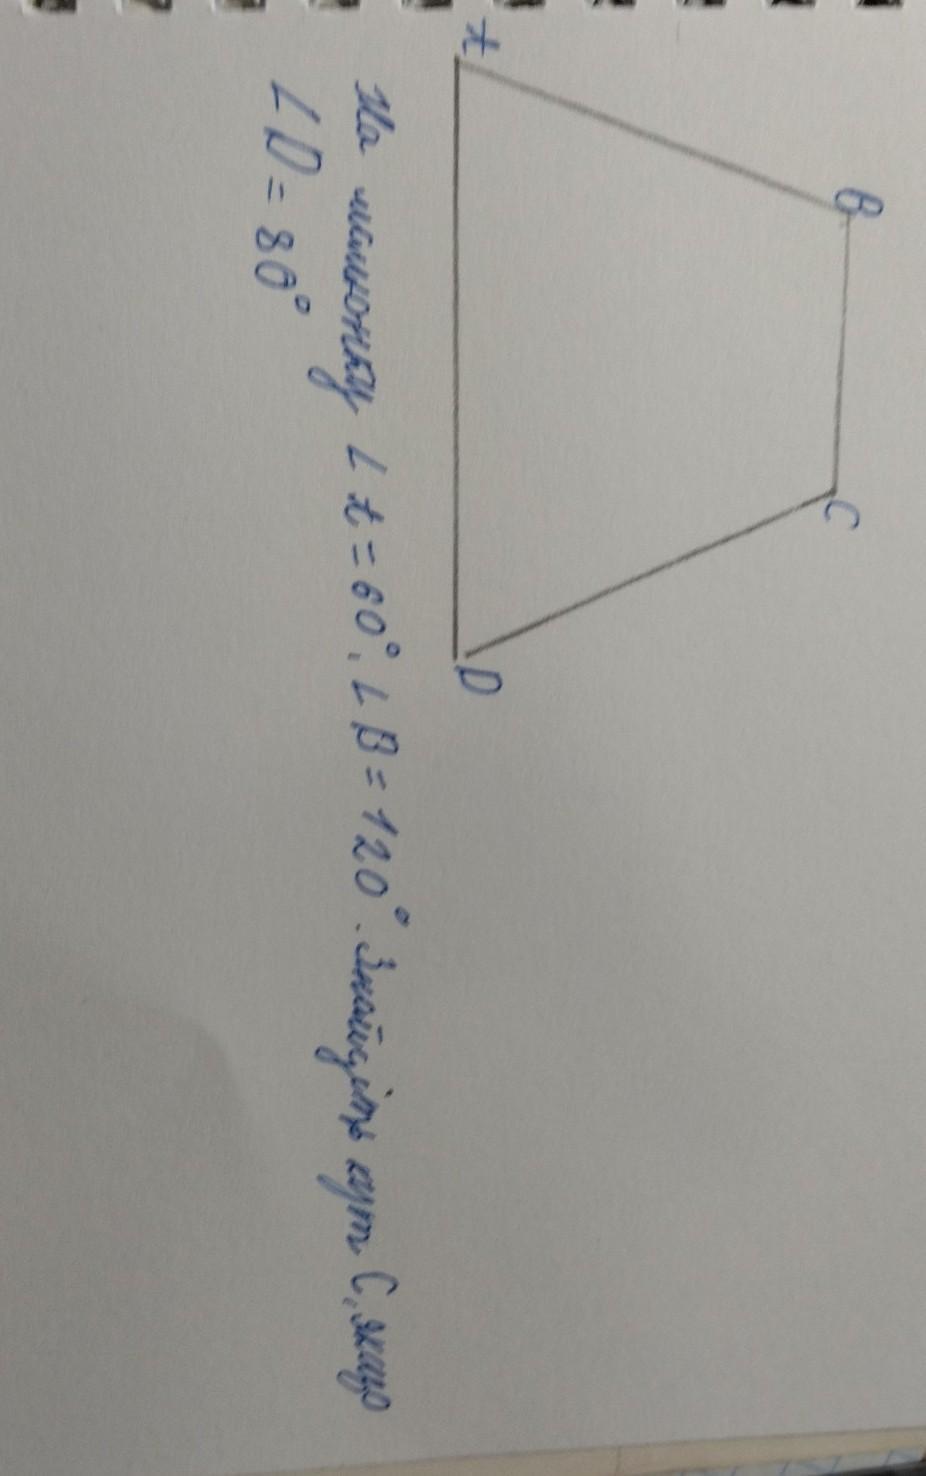 B
C
A
D
На малюнку ∠A = 60°, ∠B = 120°. Знайдіть кут C, якщо
∠D = 80°